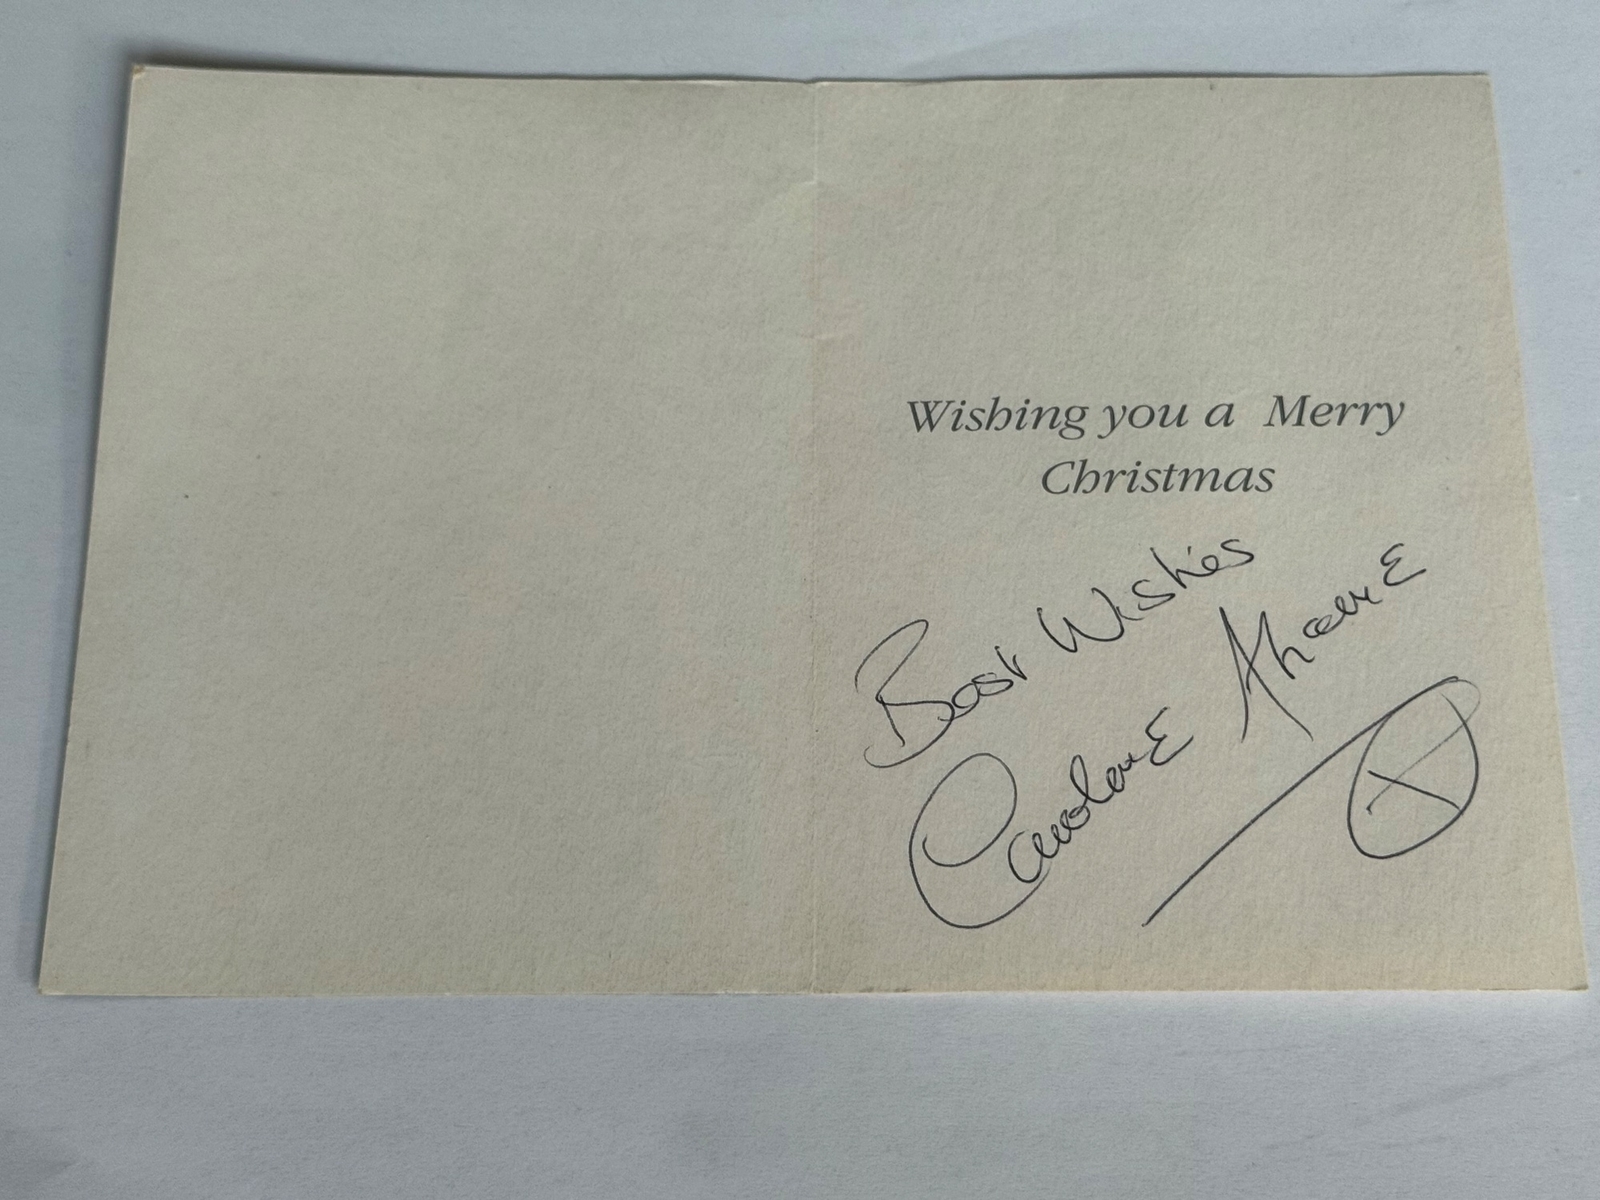 Wishing you a Merry
Christmas
Best Wishes
Caroline Aherne
X